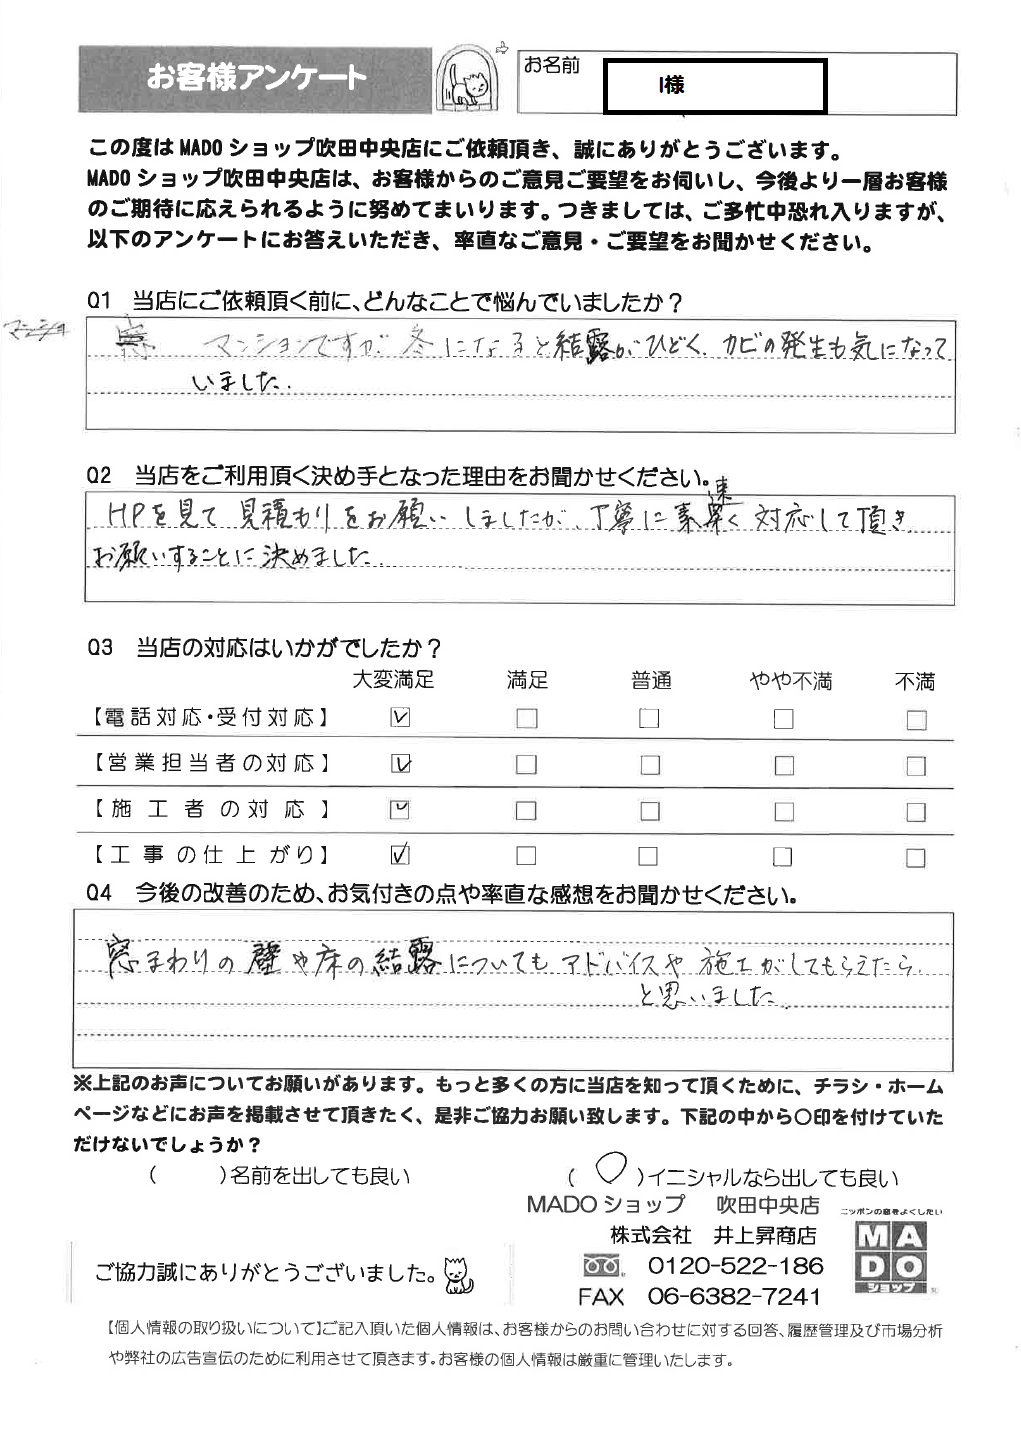 お客様アンケート
お名前
I様
この度はMADOショップ吹田中央店にご依頼頂き、誠にありがとうございます。
MADOショップ吹田中央店は、お客様からのご意見ご要望をお伺いし、今後より一層お客様
のご期待に応えられるように努めてまいります。つきましては、ご多忙中恐れ入りますが、
以下のアンケートにお答えいただき、率直なご意見・ご要望をお聞かせください。
Q1 当店にご依頼頂く前に、どんなことで悩んでいましたか？
マンションですが 冬になると結露がひどく、カビの発生も気になって
いました.
Q2 当店をご利用頂く決め手となった理由をお聞かせください。
HPを見て 見積もりをお願いしましたが、丁寧に素速く 対応して頂き
お願いすることに決めました.
Q3 当店の対応はいかがでしたか？
大変満足 満足 普通 やや不満 不満
【電話対応・受付対応】
【営業担当者の対応】
【施工者の対応】
【工事の仕上がり】
Q4 今後の改善のため、お気付きの点や率直な感想をお聞かせください。
窓まわりの 壁や床の結露についてもアドバイスや 施工がしてもらえたら、
と思いました.
※上記のお声についてお願いがあります。もっと多くの方に当店を知って頂くために、チラシ・ホーム
ページなどにお声を掲載させて頂きたく、是非ご協力お願い致します。下記の中から〇印を付けていた
だけないでしょうか？
( )名前を出しても良い (○)イニシャルなら出しても良い
MADOショップ 吹田中央店
株式会社 井上昇商店
0120-522-186
FAX 06-6382-7241
ニッポンの窓をよくしたい
MADO
ショップ
ご協力誠にありがとうございました。
【個人情報の取り扱いについて】ご記入頂いた個人情報は、お客様からのお問い合わせに対する回答、履歴管理及び市場分析
や弊社の広告宣伝のために利用させて頂きます。お客様の個人情報は厳重に管理いたします。